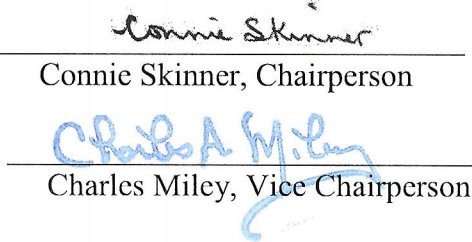 Connie Skinner
Connie Skinner, Chairperson
Charles A. Miley
Charles Miley, Vice Chairperson